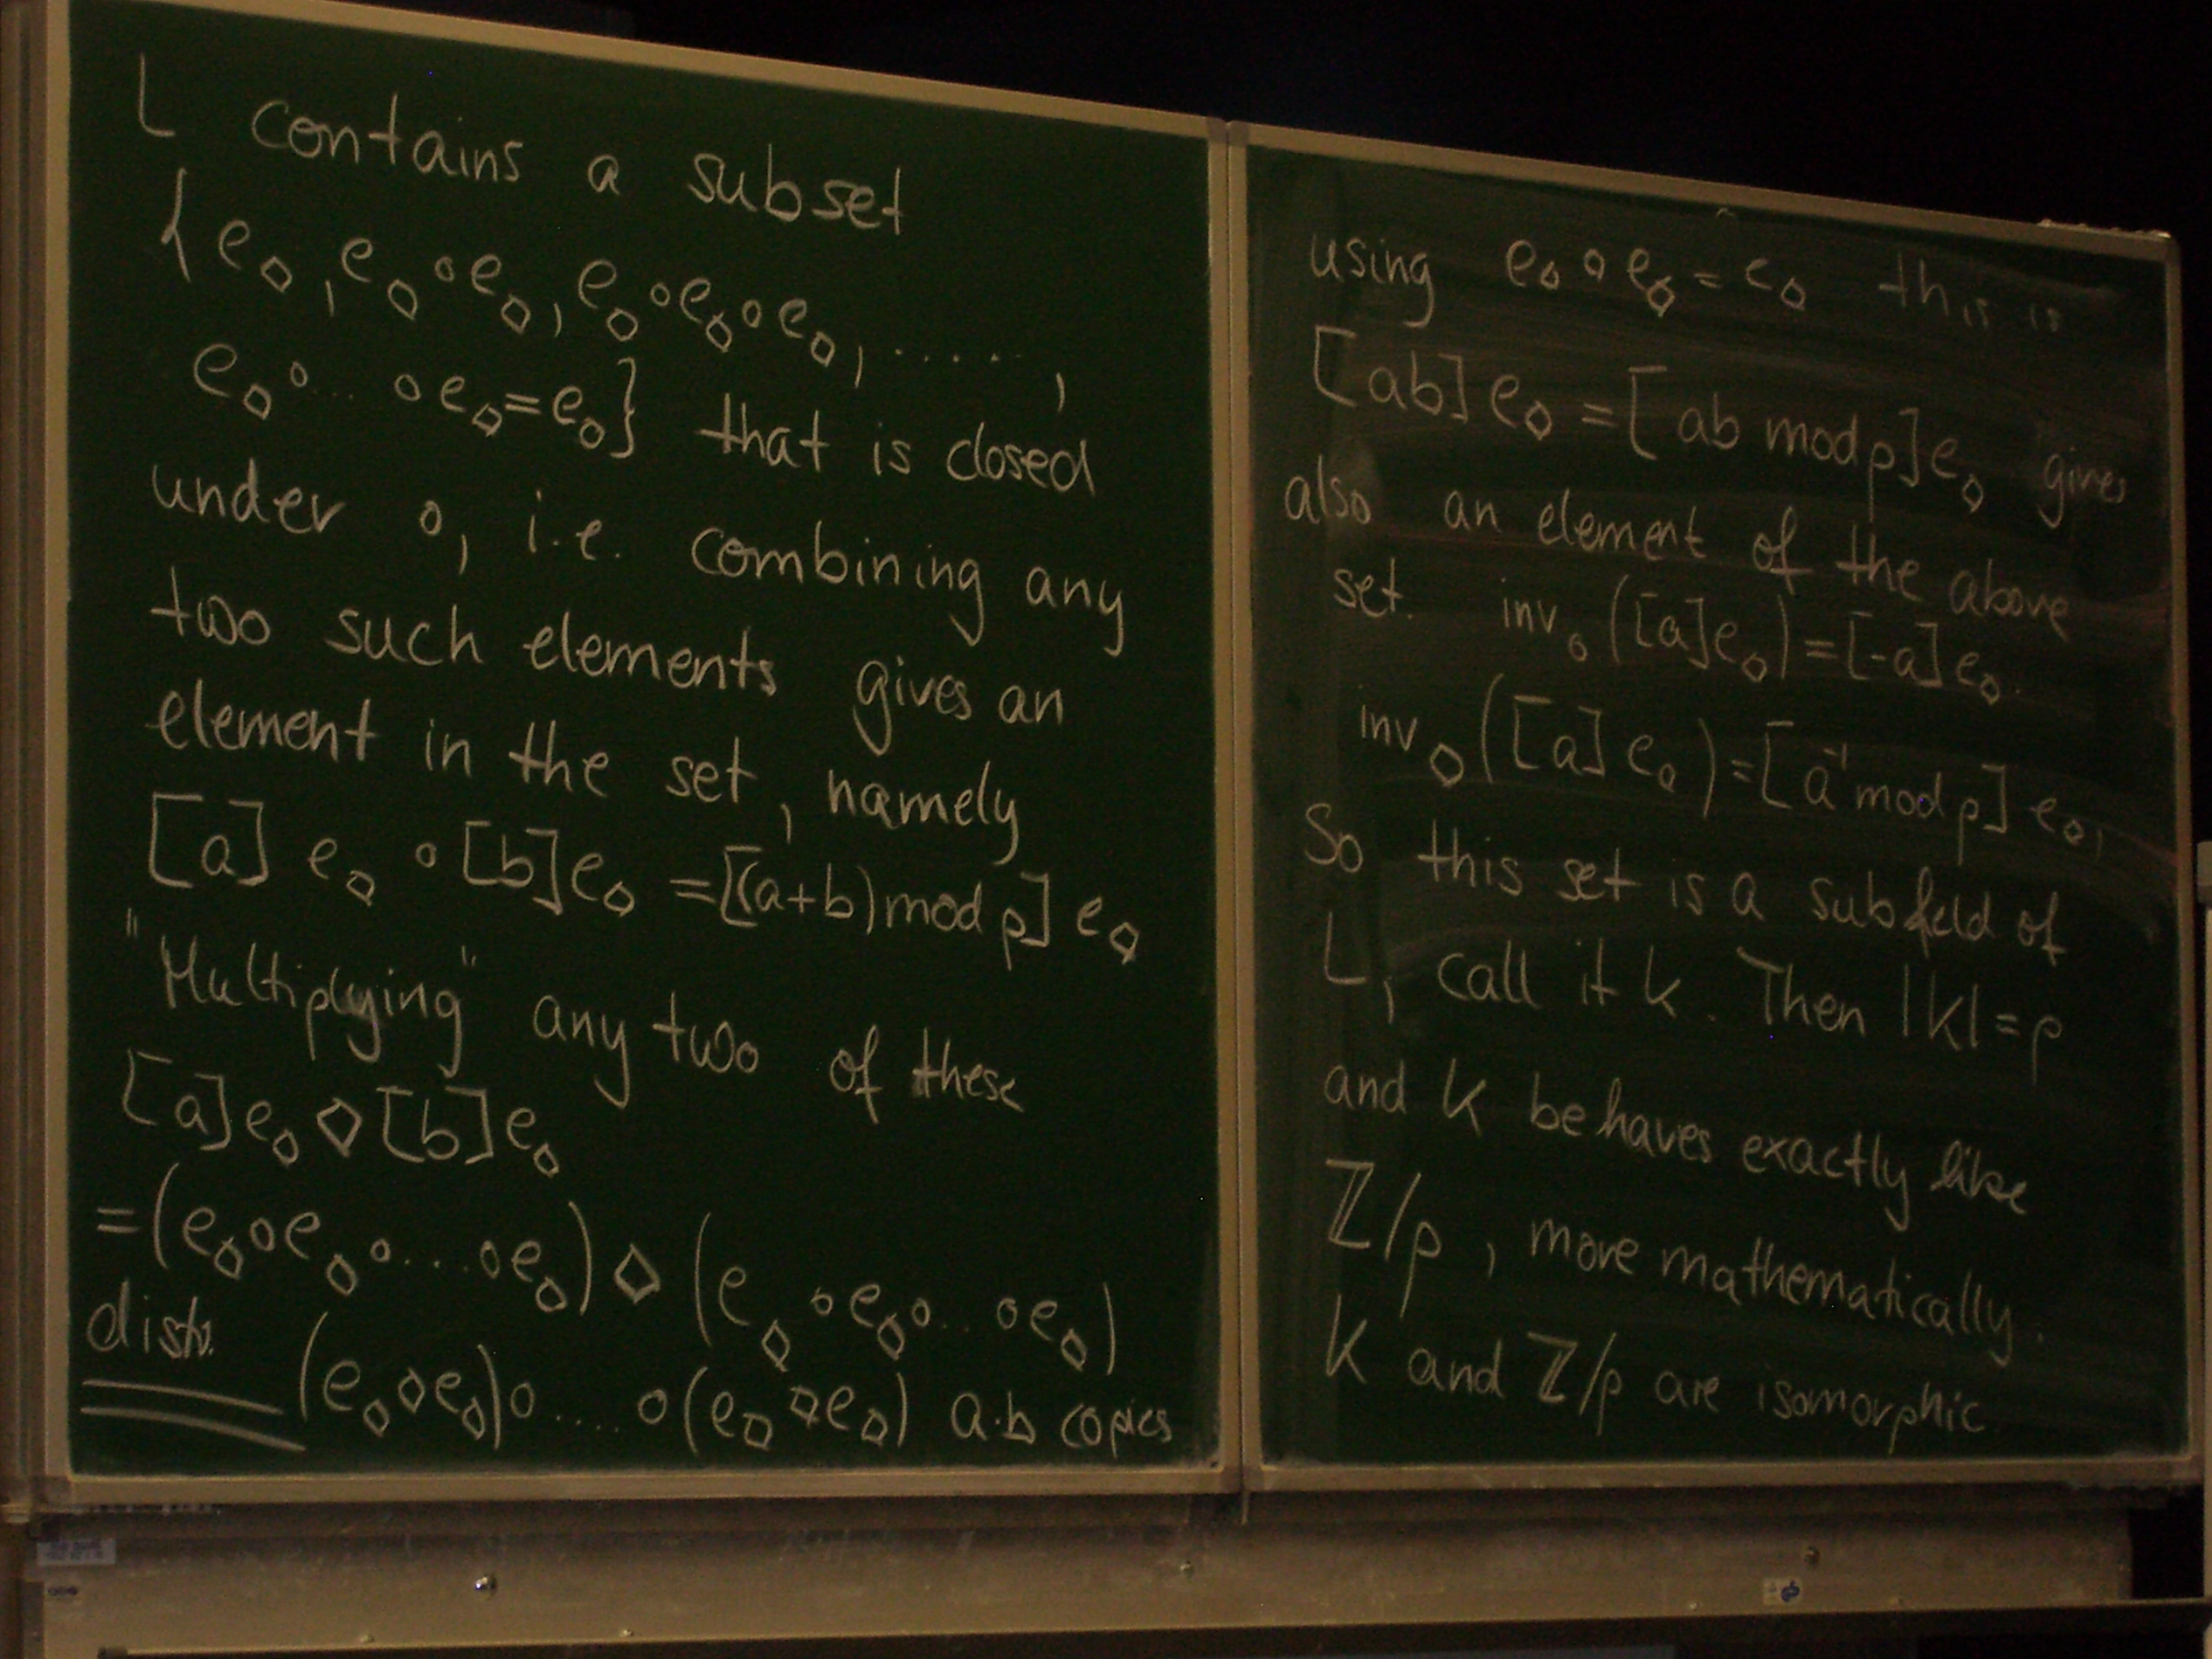 L contains a subset
{e◇, e◇∘e◇, e◇∘e◇∘e◇, .....,
e◇∘... ∘e◇=e∘} that is closed
under ∘, i.e. combining any
two such elements gives an
element in the set, namely
[a] e◇ ∘ [b]e◇ =[(a+b)mod p] e◇
"Multiplying" any two of these
[a]e◇ ◇ [b]e◇
=(e◇∘e◇∘....∘e◇) ◇ (e◇∘e◇∘... ∘e◇)
distr.
(e◇◇e◇)∘.... ∘(e◇◇e◇) a·b copies
using e◇◇e◇=e◇ this is
[ab]e◇ =[ab mod p]e◇ gives
also an element of the above
set. inv∘([a]e◇)=[-a]e◇.
inv◇([a]e◇)=[a⁻¹ mod p] e◇,
So this set is a subfield of
L, call it K. Then |K|=p
and K behaves exactly like
ℤ/p, more mathematically.
K and ℤ/p are isomorphic